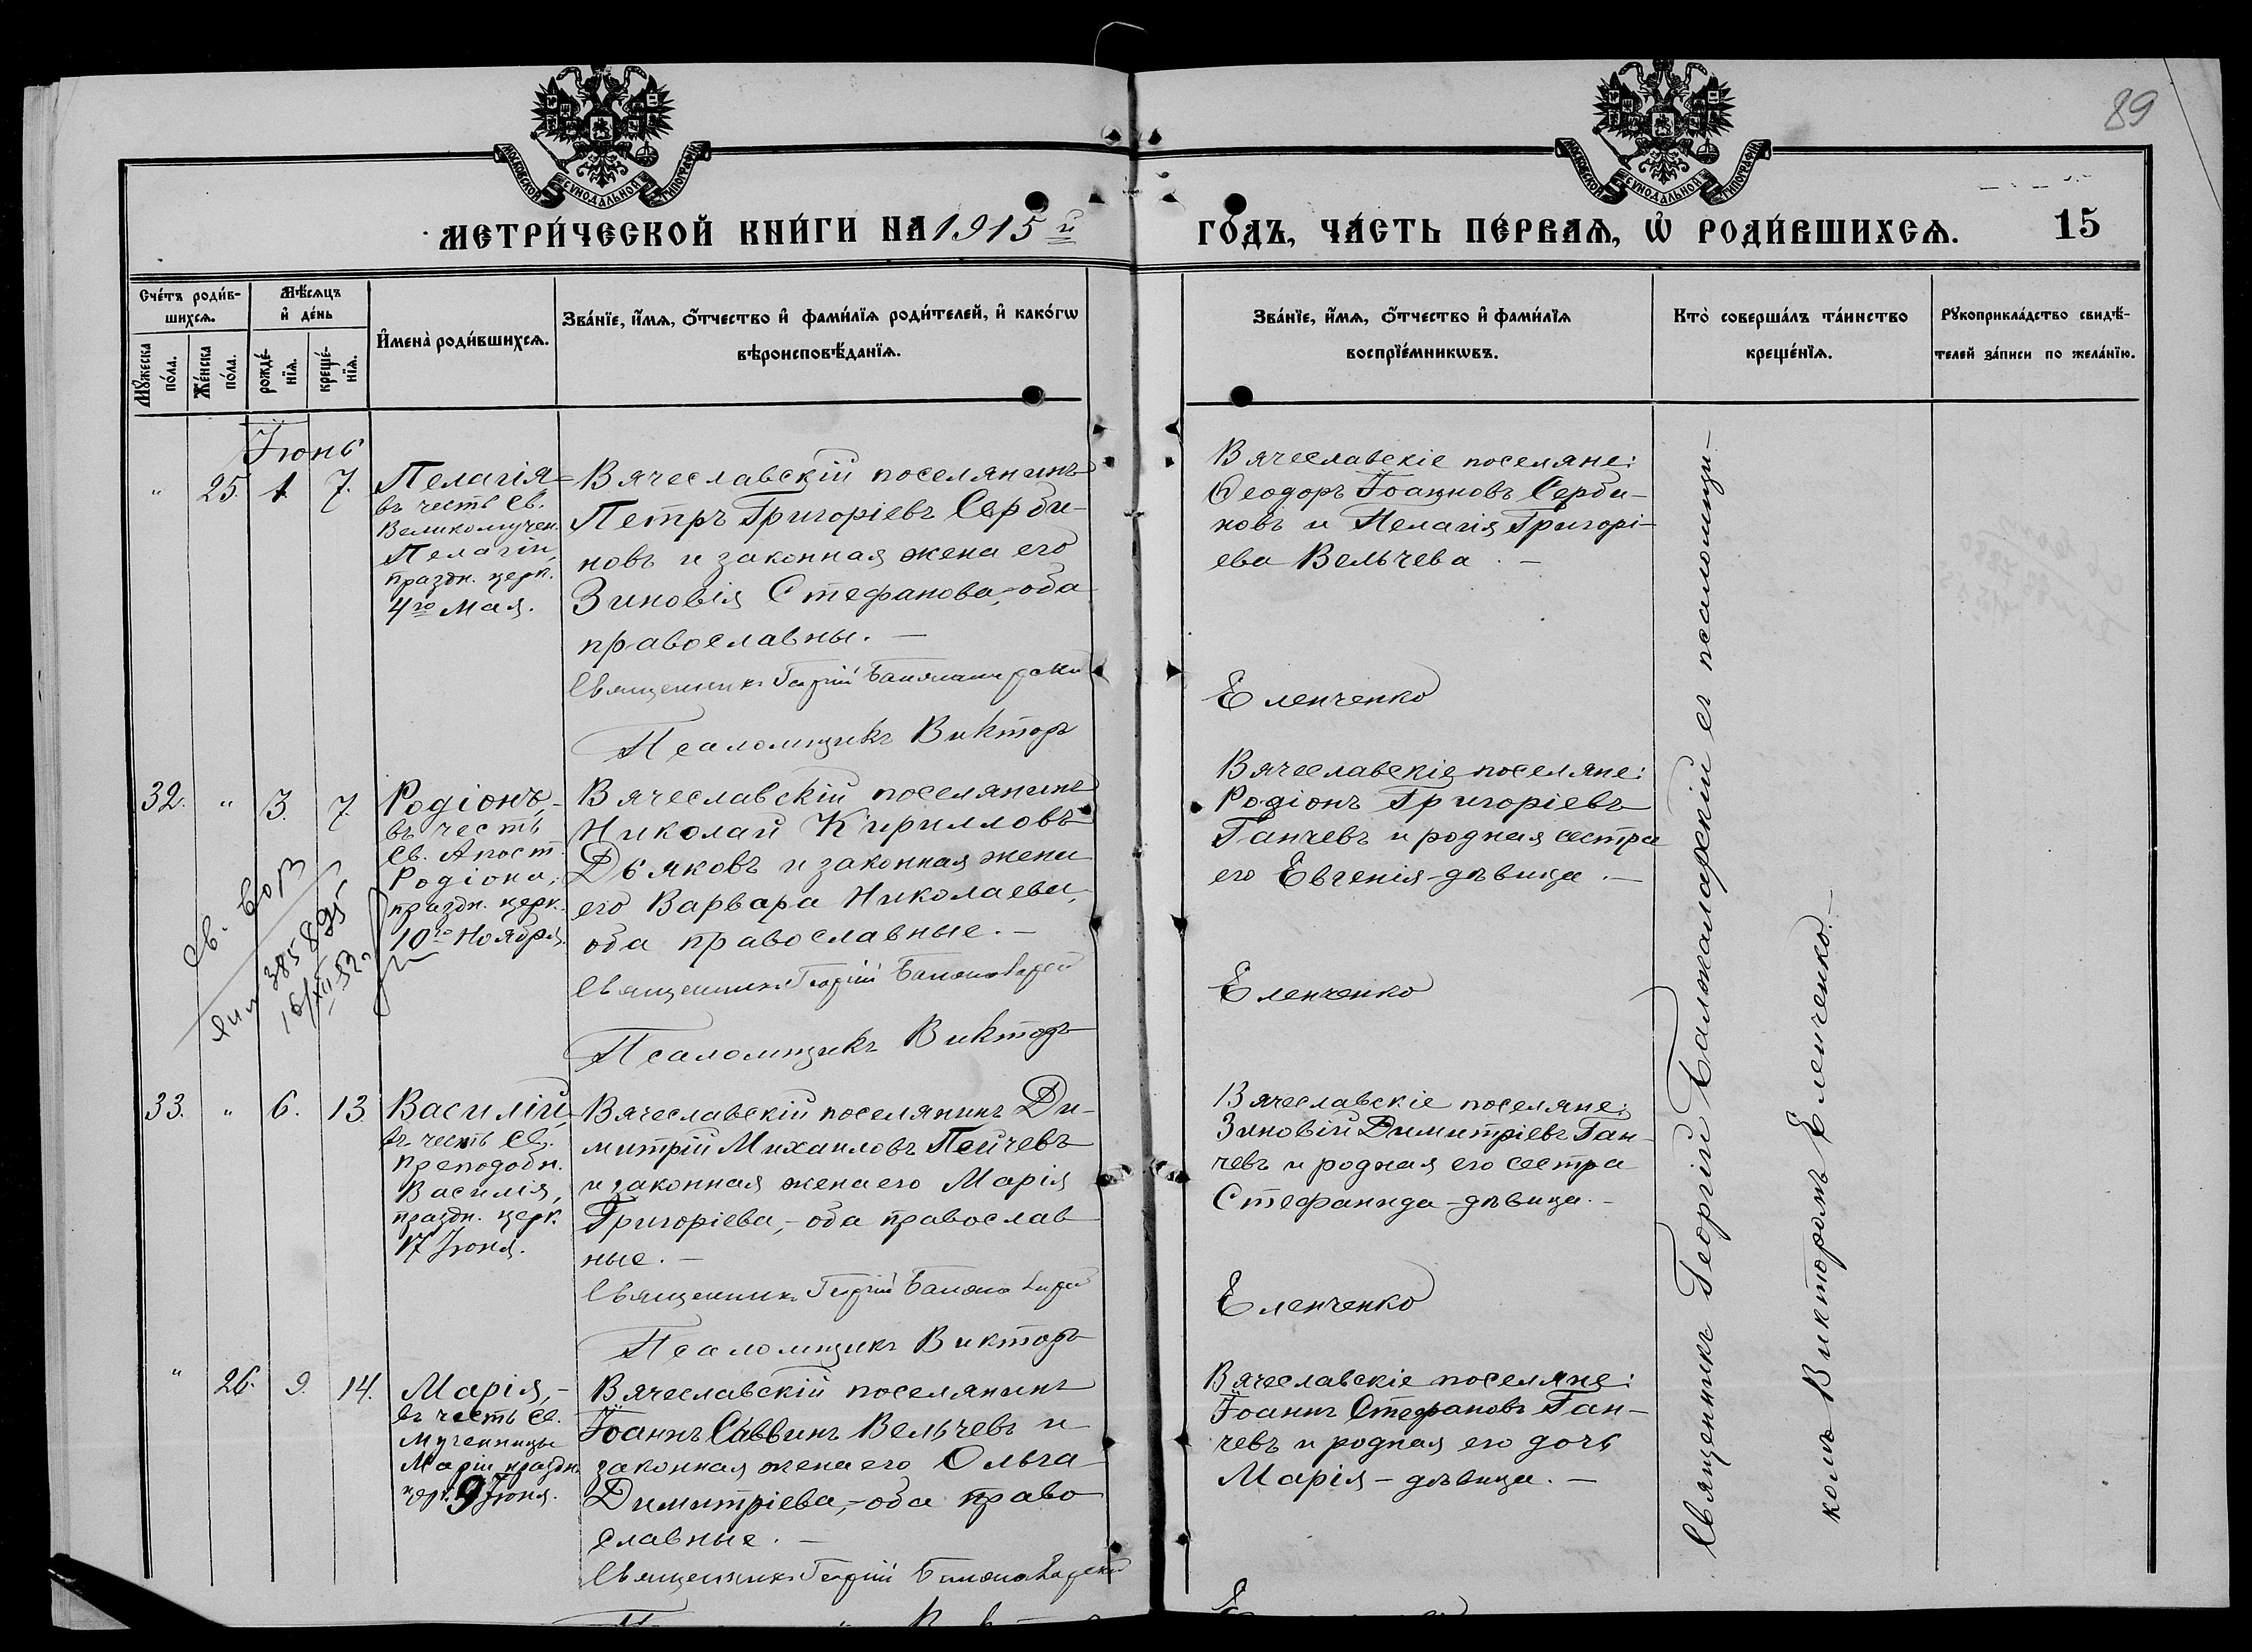 89
МОСКОВСКОЙ СѴНОДАЛЬНОЙ ТИПОГРАФІИ
МОСКОВСКОЙ СѴНОДАЛЬНОЙ ТИПОГРАФІИ
МЕТРИ́ЧЕСКОЙ КНИ́ГИ НА 1915й
ГО́ДЪ, ЧА́СТЬ ПЕ́РВАѦ, Ѡ҆ РОДИ́ВШИХСѦ. 15
Сче́тъ роди́в-
шихсѧ.
Мꙋ́жеска
по́ла.
Же́нска
по́ла.
Мѣ́сѧцъ
и҆ де́нь
рожде́-
нїѧ.
креще́-
нїѧ.
И҆мена̀ роди́вшихсѧ.
Зва́нїе, и҆́мѧ, ѻ҆́тчество и҆ фами́лїѧ роди́телей, и҆ како́гѡ
вѣроисповѣ́данїѧ.
Зва́нїе, и҆́мѧ, ѻ҆́тчество и҆ фами́лїѧ
воспрїе́мникѡвъ.
Кто̀ соверша́лъ та́инство
креще́нїѧ.
Рꙋкоприкла́дство свидѣ́-
телей за́писи по жела́нїю.
Іюнь
" 25. 1. 7.
Пелагія-
въ честь Св.
Великомучен.
Пелагіи,
праздн. церк.
4го Мая.
Вячеславскій поселянинъ
Петръ Григоріевъ Серби-
новъ и законная жена его
Зиновія Стефанова,-оба
православны.-
Священникъ Георгій
Псаломщикъ Викторъ
Вячеславскіе поселяне:
Ѳеодоръ Іоанновъ Серби-
новъ и Пелагія Григорі-
ева Вельчева.-
Еленченко
32. " 3. 7.
Родіонъ-
въ честь
Св. Апост.
Родіона,
праздн. церк.
10го Ноября.
Св.
385895
16/XII 53г.
Вячеславскій поселянинъ
Николай Кирилловъ
Дьяковъ и законная жена
его Варвара Николаева,
оба православные.-
Священникъ Георгій
Псаломщикъ Викторъ
Вячеславскіе поселяне:
Родіонъ Григоріевъ
Ганчевъ и родная сестра
его Евгенія-дѣвица.-
Еленченко
33. " 6. 13.
Василій,
въ честь Св.
Преподобн.
Василія,
праздн. церк.
17 Іюня.
Вячеславскій поселянинъ Ди-
митрій Михаиловъ Пейчевъ
и законная жена его Марія
Григоріева,-оба православ
ные.-
Священникъ Георгій
Псаломщикъ Викторъ
Вячеславскіе поселяне:
Зиновій Димитріевъ Ган-
чевъ и родная его сестра
Стефанида-дѣвица.-
Еленченко
" 26. 9. 14.
Марія,-
въ честь Св.
мученицы
Маріи праздн.
церк. 9 Іюня.
Вячеславскій поселянинъ
Іоаннъ Саввинъ Вельчевъ и
законная жена его Ольга
Димитріева,-оба право
славные.-
Священникъ Георгій
Вячеславскіе поселяне:
Іоаннъ Стефановъ Ган-
чевъ и родная его дочь
Марія-дѣвица.-
Священникъ Георгій съ псаломщи-
комъ Викторомъ Еленченко.-